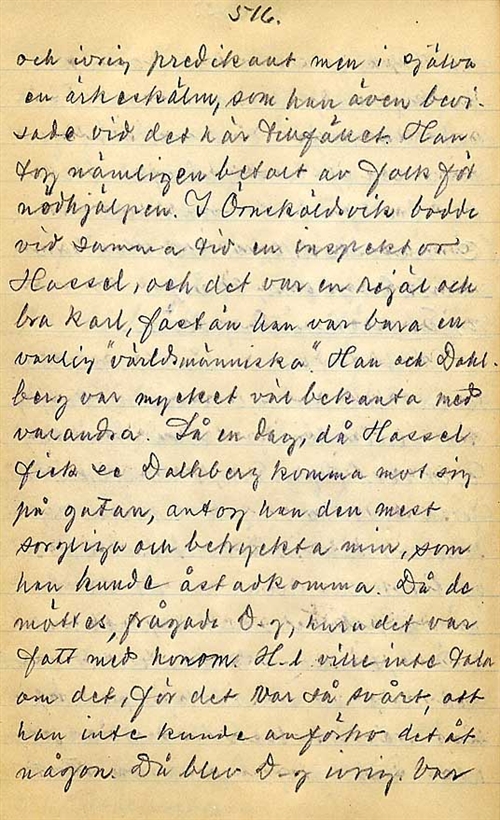 516.
och ivrig predikant men i själva
en ärkeskälm, som han även bevi-
sade vid det här tillfället. Han
tog nämligen betalt av folk för
nödhjälpen. I Örnsköldsvik bodde
vid samma tid en inspektor
Hassel, och det var en rejäl och
bra karl, fast än han var bara en
vanlig "världsmänniska". Han och Dahl-
berg var mycket väl bekanta med
varandra. Så en dag, då Hassel
fick se Dalhberg komma mot sig
på gatan, antog han den mest
sorgliga och betryckta min, som
han kunde åstadkomma. Då de
möttes, frågade D-g, huru det var
fatt med honom. H-l ville inte tala
om det, för det var så svårt, att
han inte kunde anförtro det åt
någon. Då blev D-g ivrig. Var